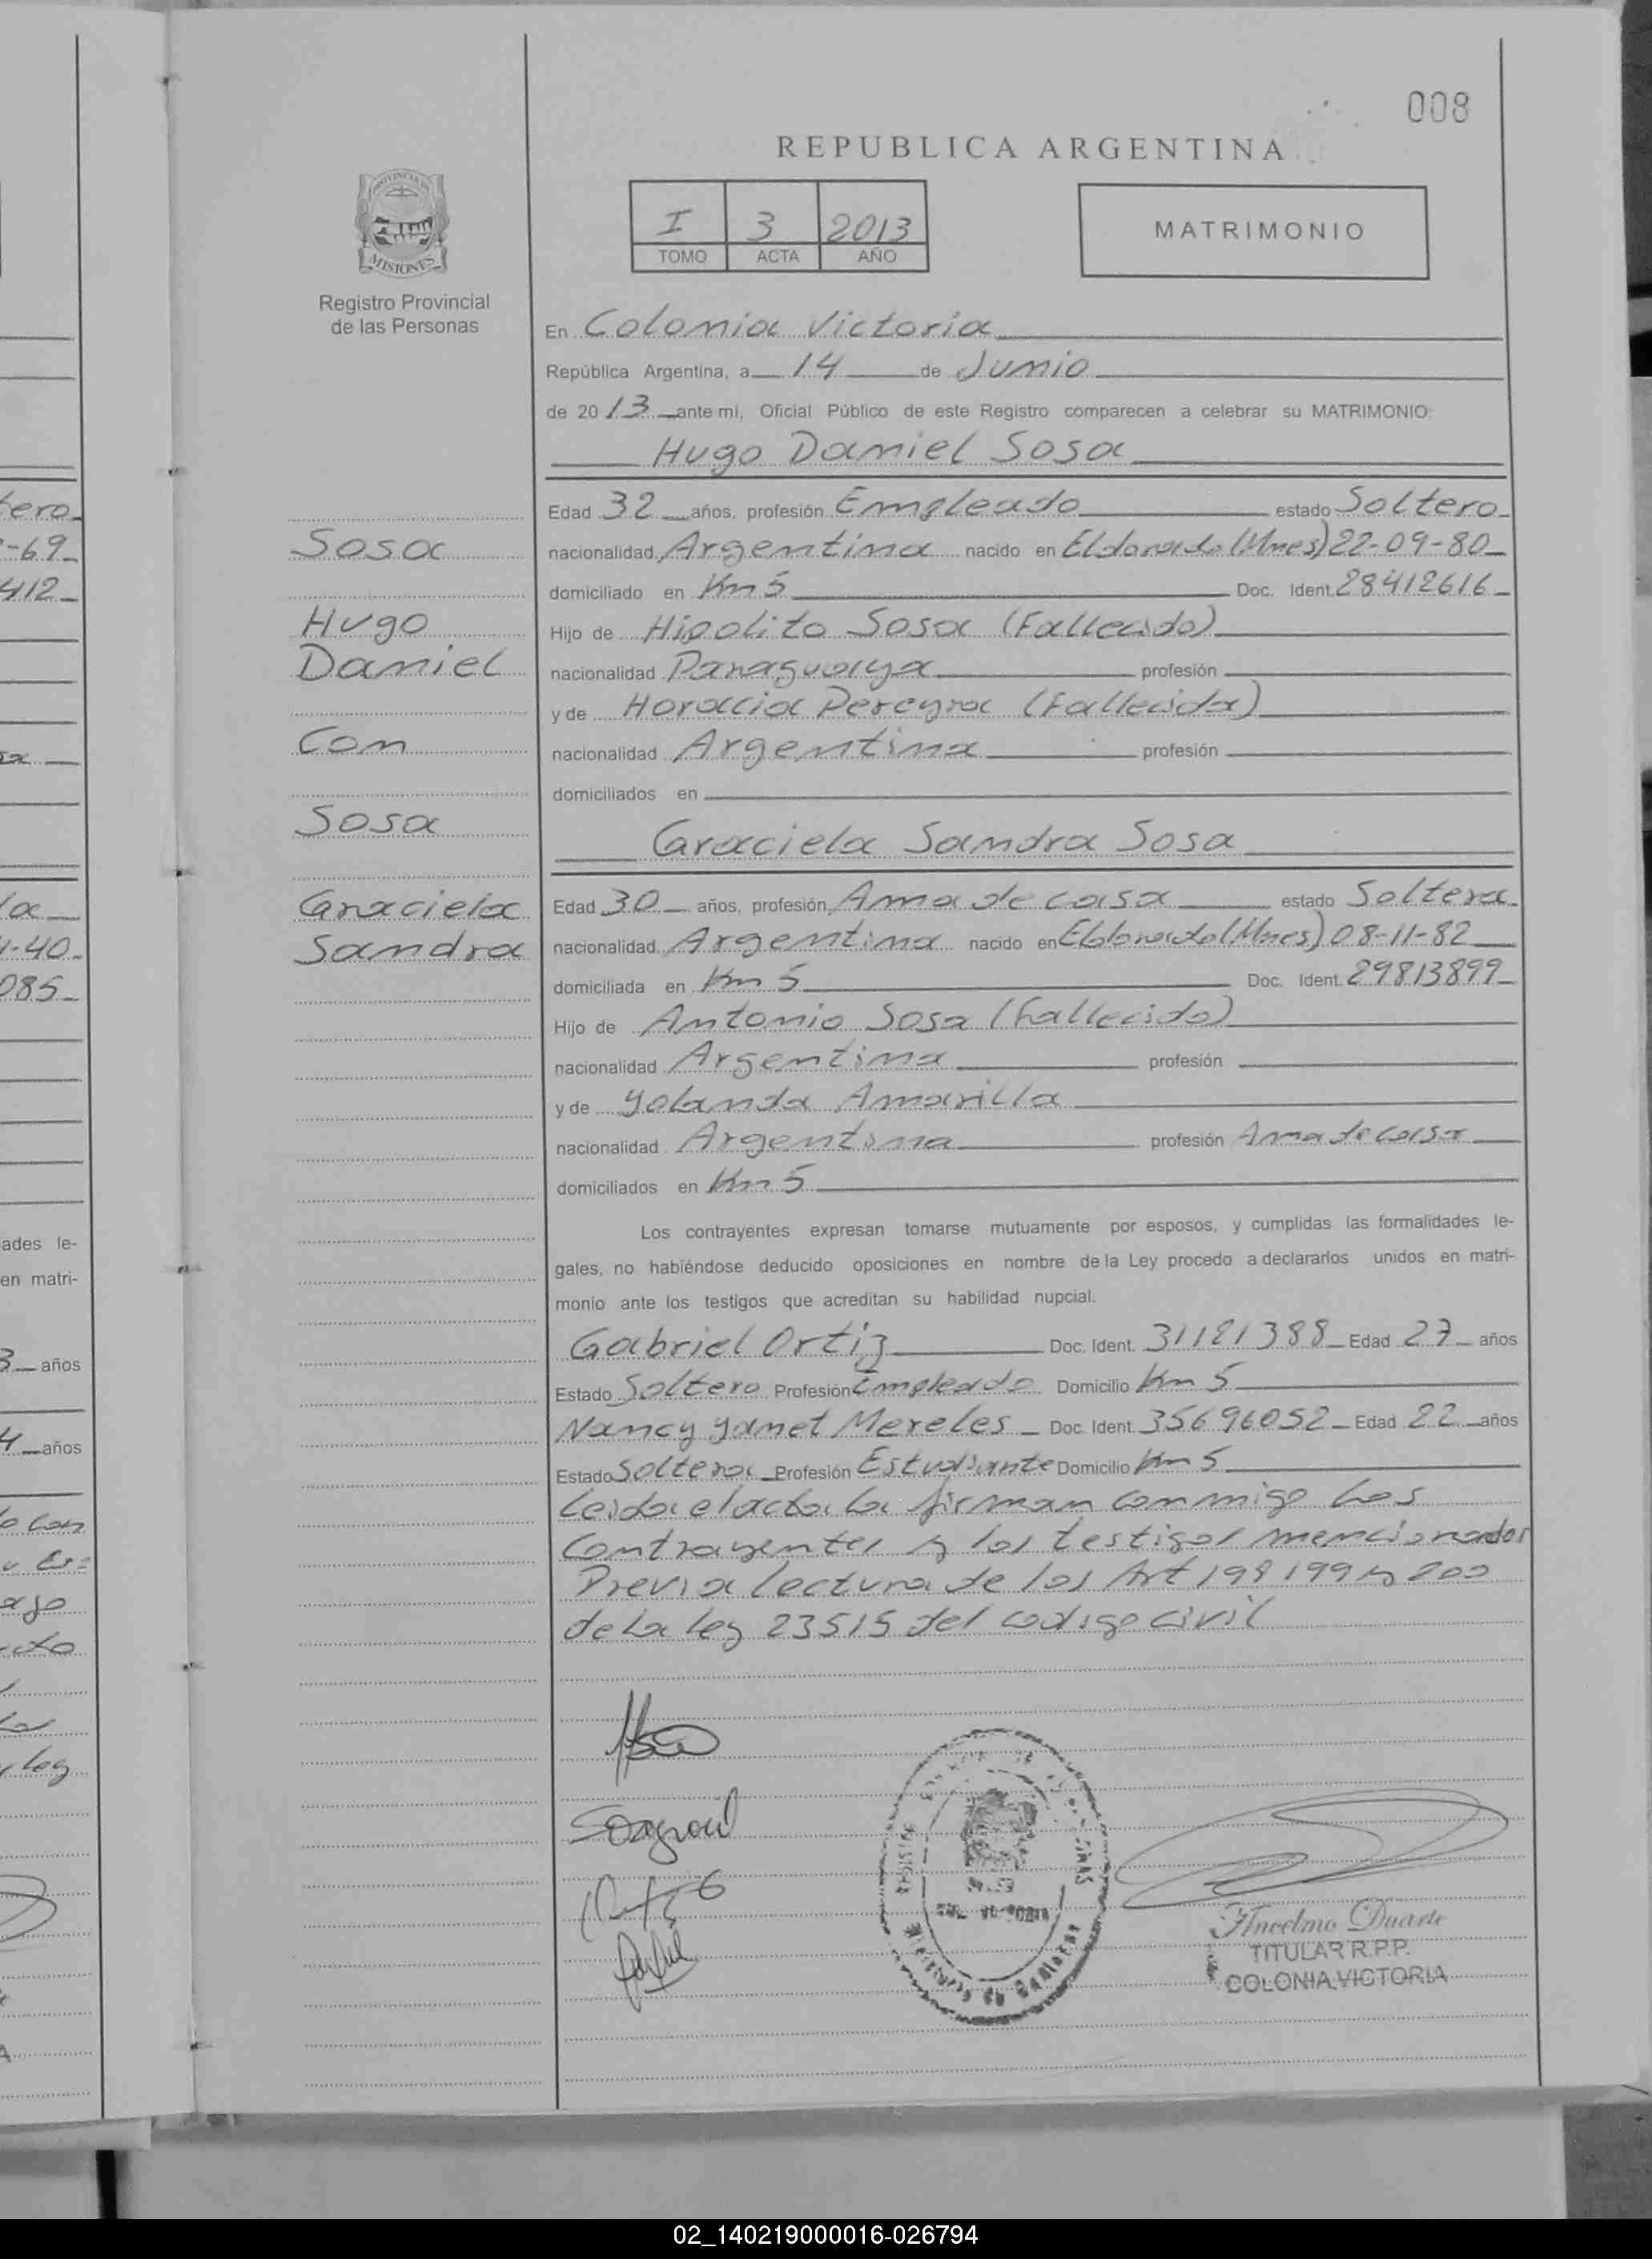 008
REPUBLICA ARGENTINA
I 3 2013
TOMO ACTA AÑO
MATRIMONIO
PROVINCIA DE
MISIONES
Registro Provincial
de las Personas
En Colonia Victoria
República Argentina, a 14 de Junio
de 2013 ante mi, Oficial Público de este Registro comparecen a celebrar su MATRIMONIO:
Hugo Daniel Sosa
Edad 32 años, profesión Empleado estado Soltero
Sosa
nacionalidad Argentina nacido en Eldorado (Mnes) 22-09-80
domiciliado en Km 5 Doc. Ident. 28412616
Hugo
Hijo de Hipolito Sosa (Fallecido)
Daniel
nacionalidad Paraguaya profesión
y de Horacia Pereyra (Fallecida)
Con
nacionalidad Argentina profesión
domiciliados en
Sosa
Graciela Sandra Sosa
Graciela
Edad 30 años, profesión Ama de casa estado Soltera
Sandra
nacionalidad Argentina nacido en Eldorado (Mnes) 08-11-82
domiciliada en Km 5 Doc. Ident. 29813899
Hijo de Antonio Sosa (Fallecido)
nacionalidad Argentina profesión
y de Yolanda Amarilla
nacionalidad Argentina profesión Ama de casa
domiciliados en Km 5
Los contrayentes expresan tomarse mutuamente por esposos, y cumplidas las formalidades le-
gales, no habiéndose deducido oposiciones en nombre de la Ley procedo a declararlos unidos en matri-
monio ante los testigos que acreditan su habilidad nupcial.
Gabriel Ortiz Doc. Ident. 31121388 Edad 27 años
Estado Soltero Profesión Empleado Domicilio Km 5
Nancy Yanet Mereles Doc. Ident. 35696052 Edad 22 años
Estado Soltera Profesión Estudiante Domicilio Km 5
Leida el acta la firman conmigo los
contrayentes y los testigos mencionados
Previa lectura de los Art 198 199 y 200
de la ley 23515 del codigo civil
Ancelmo Duarte
TITULAR R.P.P.
COLONIA VICTORIA
tero
-69
412
la
-40
085
ades le-
en matri-
3 años
4 años
ley
02_140219000016-026794